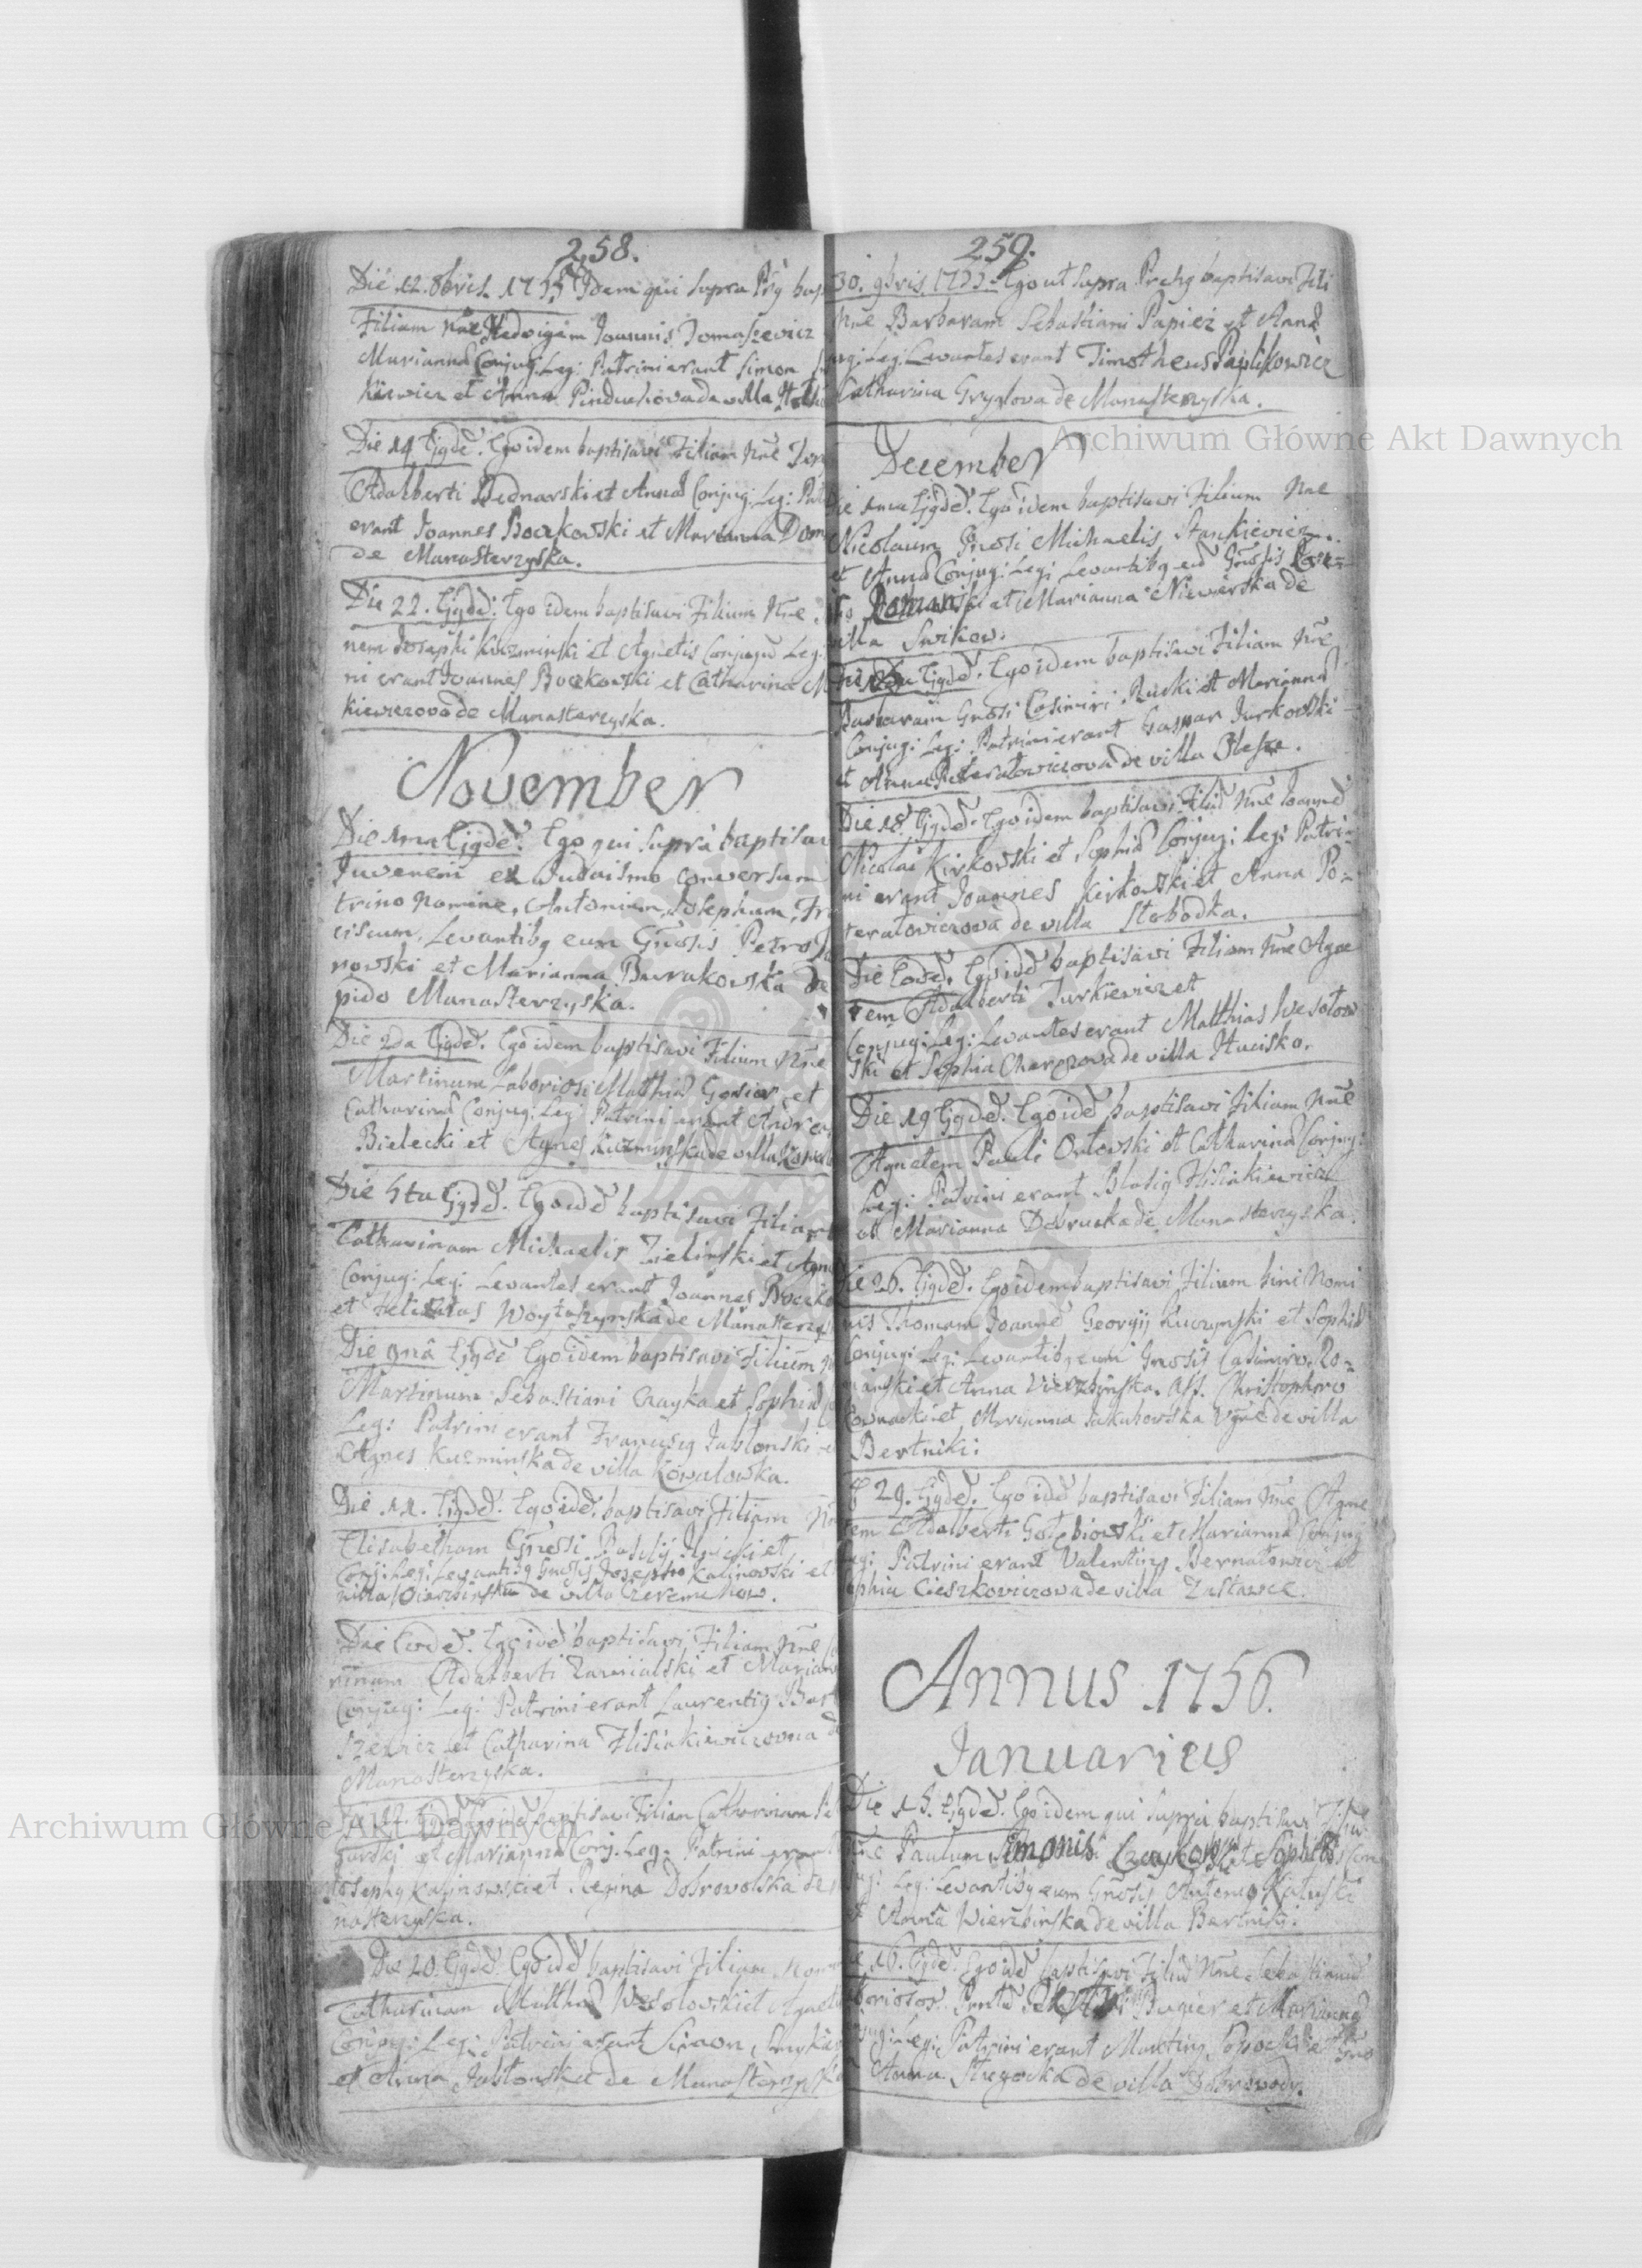 258.
Die 12. 8bris. 1755 Idem qui supra Pög bap
Filiam Nne Hedvigem Joannis Tomaszewicz
Marianna Conjug: Leg: Patrini erant Simon
kiewicz et Anna Pinduchova de villa
Die 19 Ejgdē. Ego idem baptisavi Filium Nne
Adalberti Bednarski et Anna Conjug: Leg: Pat
erant Joannes Boczkowski et Marianna Dom
de Manasterzyska.
Die 22. Ejgdē. Ego idem baptisavi Filium Nne
nem Josephi Kuzminski et Agnetis Conjugū Leg:
ni erant Joannes Boczkowski et Catharina M
kiewiczova de Manasterzyska.
November
Die 1ma Ejgdē. Ego qui supra baptisav
Juvenem ex Judaismo conversum
trino nomine, Antonium, Josephum, Fra
ciscum, Levantibg eum Gnosis Petro
nowski et Marianna Burakowska de
pido Manasterzyska.
Die 2da Ejgdē. Ego idem baptisavi Filium Nne
Martinum Laboriosi Matthia Gonior et
Catharina Conjug: Leg: Patrini erant Andreas
Bielecki et Agnes Kuzminska de villa Kowal
Die 5ta Ejgdē. Ego idē baptisavi Filiam
Catharinam Michaelis Zielinski et Agne
Conjug: Leg: Levantes erant Joannes Boczko
et Felicitas Woytaszynska de Manasterzys
Die 9na Ejgdē Ego idem baptisavi Filium
Martinum Sebastiani Czayka et Sophia
Leg: Patrini erant Franciscg Jablonski
Agnes Kuzminska de villa Kowalowka.
Die 11. Ejgdē. Ego idē. baptisavi Filiam Nn
Elisabetham Gnosi Basilij Ilnicki et
Conj: Leg: Levantibg Gnosis Josepho Kalinowski et
de villa Czeremchow.
Die Eodē. Ego idē baptisavi Filiam Nne
rinam Adalberti Zawialski et Mariann
Conjug: Leg: Patrini erant Laurentig Bart
szewicz et Catharina Flisiakiewiczovna
Manasterzyska.
Die 22 Ejgdē Ego idē baptisavi Filiam Catharinam
Gurski et Marianna Conj: Leg: Patrini erant
Josephg Kalinowski et Regina Dobrovolska de
nasterzyska.
Die 20. Ejgdē. Ego idē baptisavi Filiam Nom
Catharinam Matthia Wesolowski et Agnet
Conjug: Leg: Patrini erant Simon
et Anna Jablonska de Manasterzyska
259.
30. 9bris. 1755. Ego ut supra Pretig baptisavi Fili
Nne Barbaram Sebastiani Papiez et Anna
jug: Leg: Levantes erant Timotheus Paplikowicz
Catharina Gryzlova de Manasterzyska.
December
Die 1ma Ejgdē. Ego idem baptisavi Filium Nne
Nicolaum Gnosi Michaelis Stankiewicz
et Anna Conjug: Leg: Levantibg eū Gnosis
et Marianna Niewirska de
villa Swikow.
Ejgdē. Ego idem baptisavi Filiam Nne
Barbaram Gnosi Casimiri Ruski et Marianna
Conjug: Leg: Patrini erant Gaspar Jurkowski
et Anna Poteratowiczova de villa Olesze.
Die 18 Ejgdē. Ego idem baptisavi Filiū Nne Joannē
Nicolai Kirkowski et Sophia Conjug: Leg: Patri-
ni erant Joannes Kirkowski et Anna Po-
teratoviczova de villa Slobodka.
Die Eodē. Ego idē baptisavi Filiam Nne Agne
tem Adalberti Jurkiewicz et
Conjug: Leg: Levantes erant Matthias Wesolow
ski et Sophia Charzova de villa Hucisko.
Die 19 Ejgdē. Ego idē baptisavi Filiam Nne
Agnetem Pauli Orlowski et Catharina Conjug:
Leg: Patrini erant Blasig Flisiakiewicz
et Marianna Dobrucka de Manasterzyska.
Die 26. Ejgdē. Ego idem baptisavi Filium bini Nomi
nis Thomam Joannē Georgij Kuczynski et Sophia
Conjug: Leg: Levantibg eum Gnosis Casimiro Ro-
manski et Anna Vierzbinska. Ass. Christophoro
et Marianna Jakubowska Vgne de villa
Bertniki:
29. Ejgdē. Ego idē baptisavi Filiam Nne Agne
tem Adalberti Golębiowski et Marianna Conjug
Leg: Patrini erant Valenting Bernatowicz et
Sophia Cieszkoviczova de villa Zaslawce.
Annus 1756.
Januarius
Die 15. Ejgdē. Ego idem qui supra baptisavi Filiū
Nne Paulum Simonis Czaykowski et Sophia Con
jug: Leg: Levantibg eum Gnosis Antonio Kaluski
et Anna Wierzbinska de villa Bertniki.
Die 16. Ejgdē. Ego idē baptisavi Filiū Nne Sebastianū
Bugier et Marianna
Conjug: Leg: Patrini erant Marting
Anna de villa Dobrovody.
Archiwum Główne Akt Dawnych
Archiwum Główne Akt Dawnych